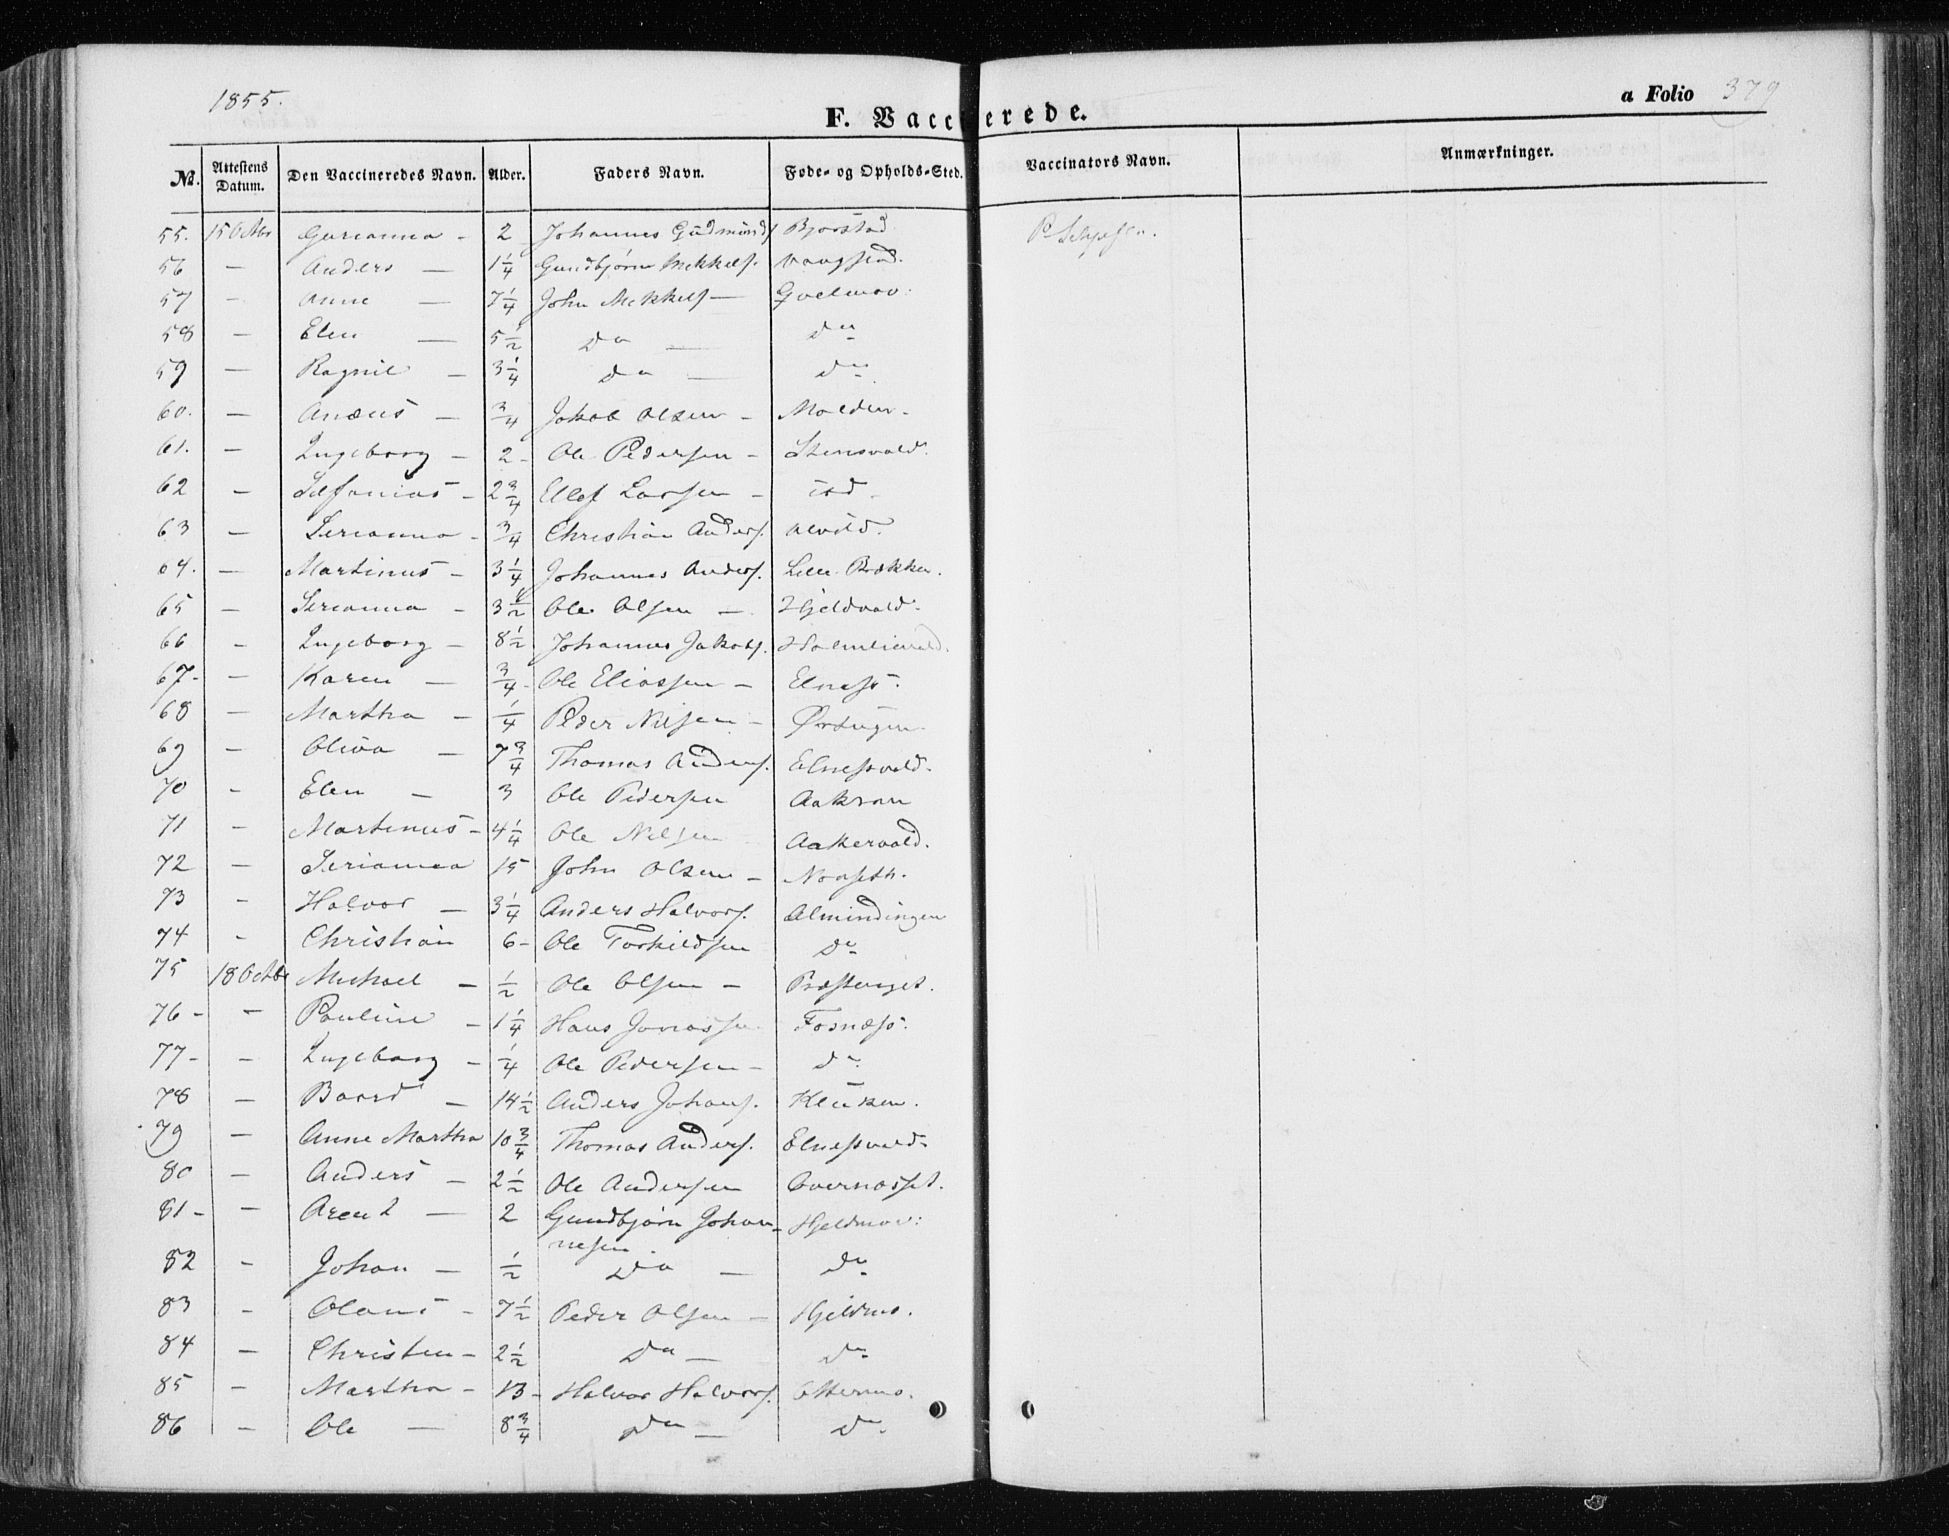 1855.
a Folio 379
F. Vaccinerede.
No. Attestens Datum. Den Vaccineredes Navn. Alder. Faders Navn. Føde- og Opholds-Sted. Vaccinators Navn. Anmærkninger.
55. 15 Octbr Gurianna - 2 Johannes Gudmunds Bjørstad
56 - Anders - 1 1/4 Gundbjørn Mikkels. Vaagstad.
57 - Anne - 7 1/4 John Mikkels -
58 - Elen - 5 1/2 Do - Do
59 - Ragnil - 3 1/4 Do - Do
60. - - 3/4 Jakob Olsen - Molden.
61. - Ingeborg - 2 - Ole Pedersen -
62 - - 2 3/4 Ellef Larsen -
63 - Serianna - 3/4 Christian Anders.
64. - Martinus - 3 1/4 Johannes Anders. Lille Brækken.
65 - Serianna - 3 1/2 Ole Olsen -
66 - Ingeborg - 8 1/2 Johannes Jakobs.
67 - Karen - 3/4 - Ole Eliassen - Elness.
68 - Martha - 1/4 Peder Nilsen -
69 - Oliva - 7 3/4 Thomas Anders. Elnessvald.
70 - Elen - 3 Ole Pedersen Aakran
71 - Martinus - 4 1/4 Ole Nilsen Aakervald.
72 - Serianna 15 John Olsen -
73 - Halvor - 3 1/4 Anders Halvors. Almindingen
74 - Christian 6 - Ole Torkildsen Do
75 18 Octbr Michael - 1/2 Ole Olsen - Præstenget.
76 - - Pauline - 1 1/4 Hans Jonassen Fosnæss.
77 - - Ingeborg - 1/4 Ole Pedersen - Do
78 - Baard - 14 1/2 Anders Johans. Kluken.
79 - Anne Martha 10 3/4 Thomas Anders. Elnessvald
80 - Anders - 2 1/2 Ole Andersen Overnasset.
81 - - Arent - 2 Gundbjørn Johan- Hjeldmo:
nesen
82 - Johan - 1/2 Do - Do
83 - Olaus - 7 1/2 Peder Olsen - Hjeldmo.
84 - Christen - 2 1/2 Do - Do
85 - Martha - 13 - Halvor Halvors. Ottermo.
86 - Ole - 8 3/4 Do - Do